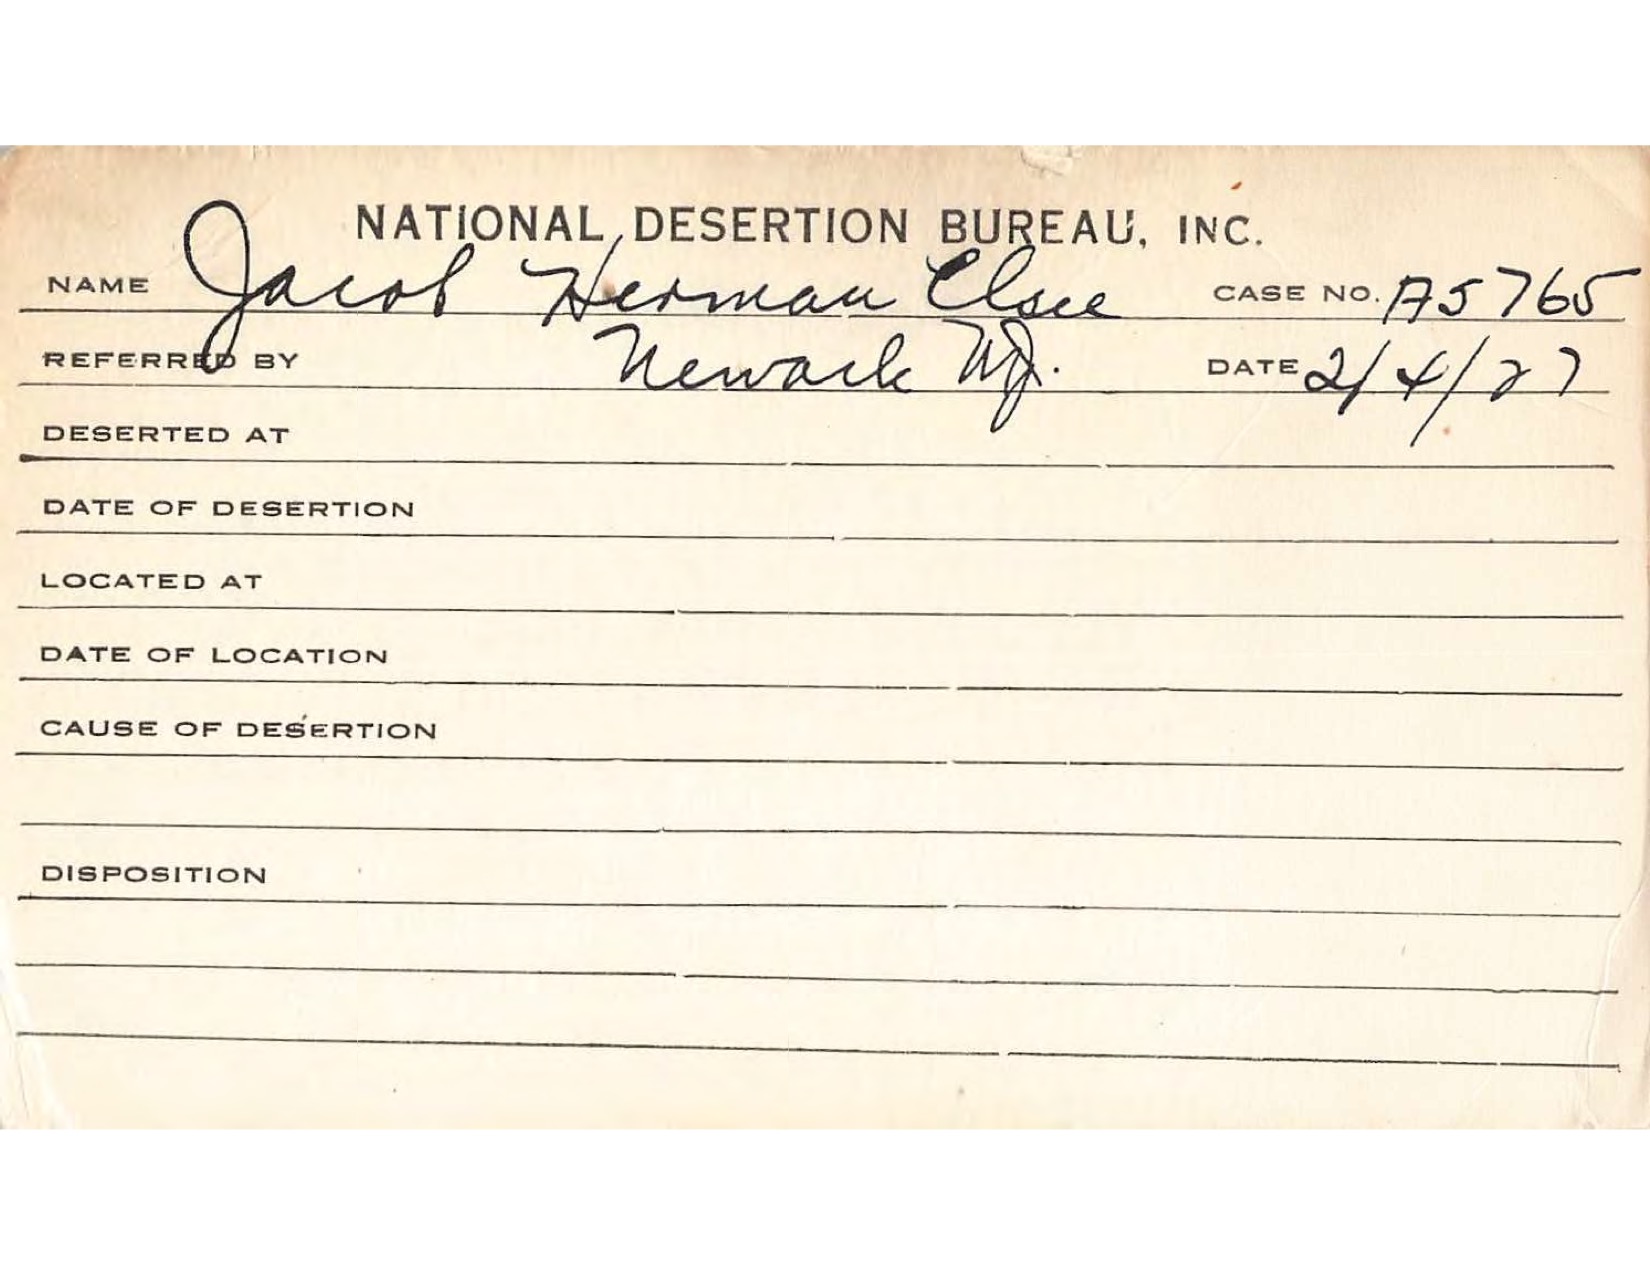 NATIONAL DESERTION BUREAU, INC.
NAME Jacob Herman Elsie CASE NO. A5765
REFERRED BY Newark N.J. DATE 2/4/27
DESERTED AT
DATE OF DESERTION
LOCATED AT
DATE OF LOCATION
CAUSE OF DESERTION
DISPOSITION